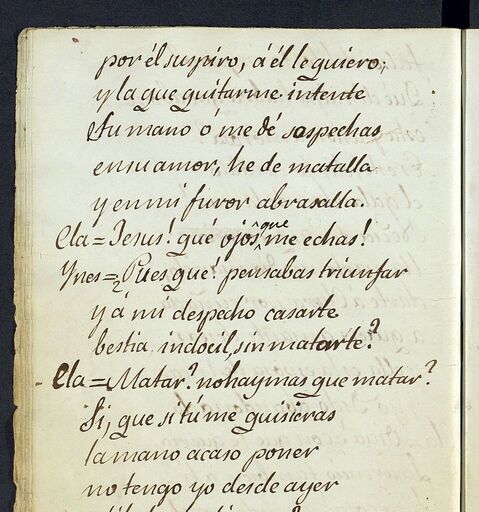 por él suspiro, á él le quiero;
y la que quitarme intente
Su mano ó me dé sospechas
en su amor, he de matalla
y en mi furor abrasalla.
Cla = Jesus! qué ojos que me echas!
Ynes = ¿Pues qué! pensabas triunfar
y á mi despecho casarte
bestia indocil, sin matarte?
Cla = Matar? no hay mas que matar?
Si, que si tú me quisieras
la mano acaso poner
no tengo yo desde ayer